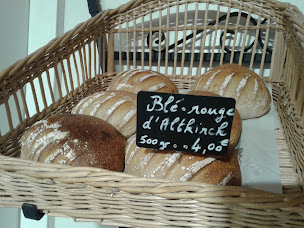 Blé-rouge
d'Altkirch
500g .. 4,00€